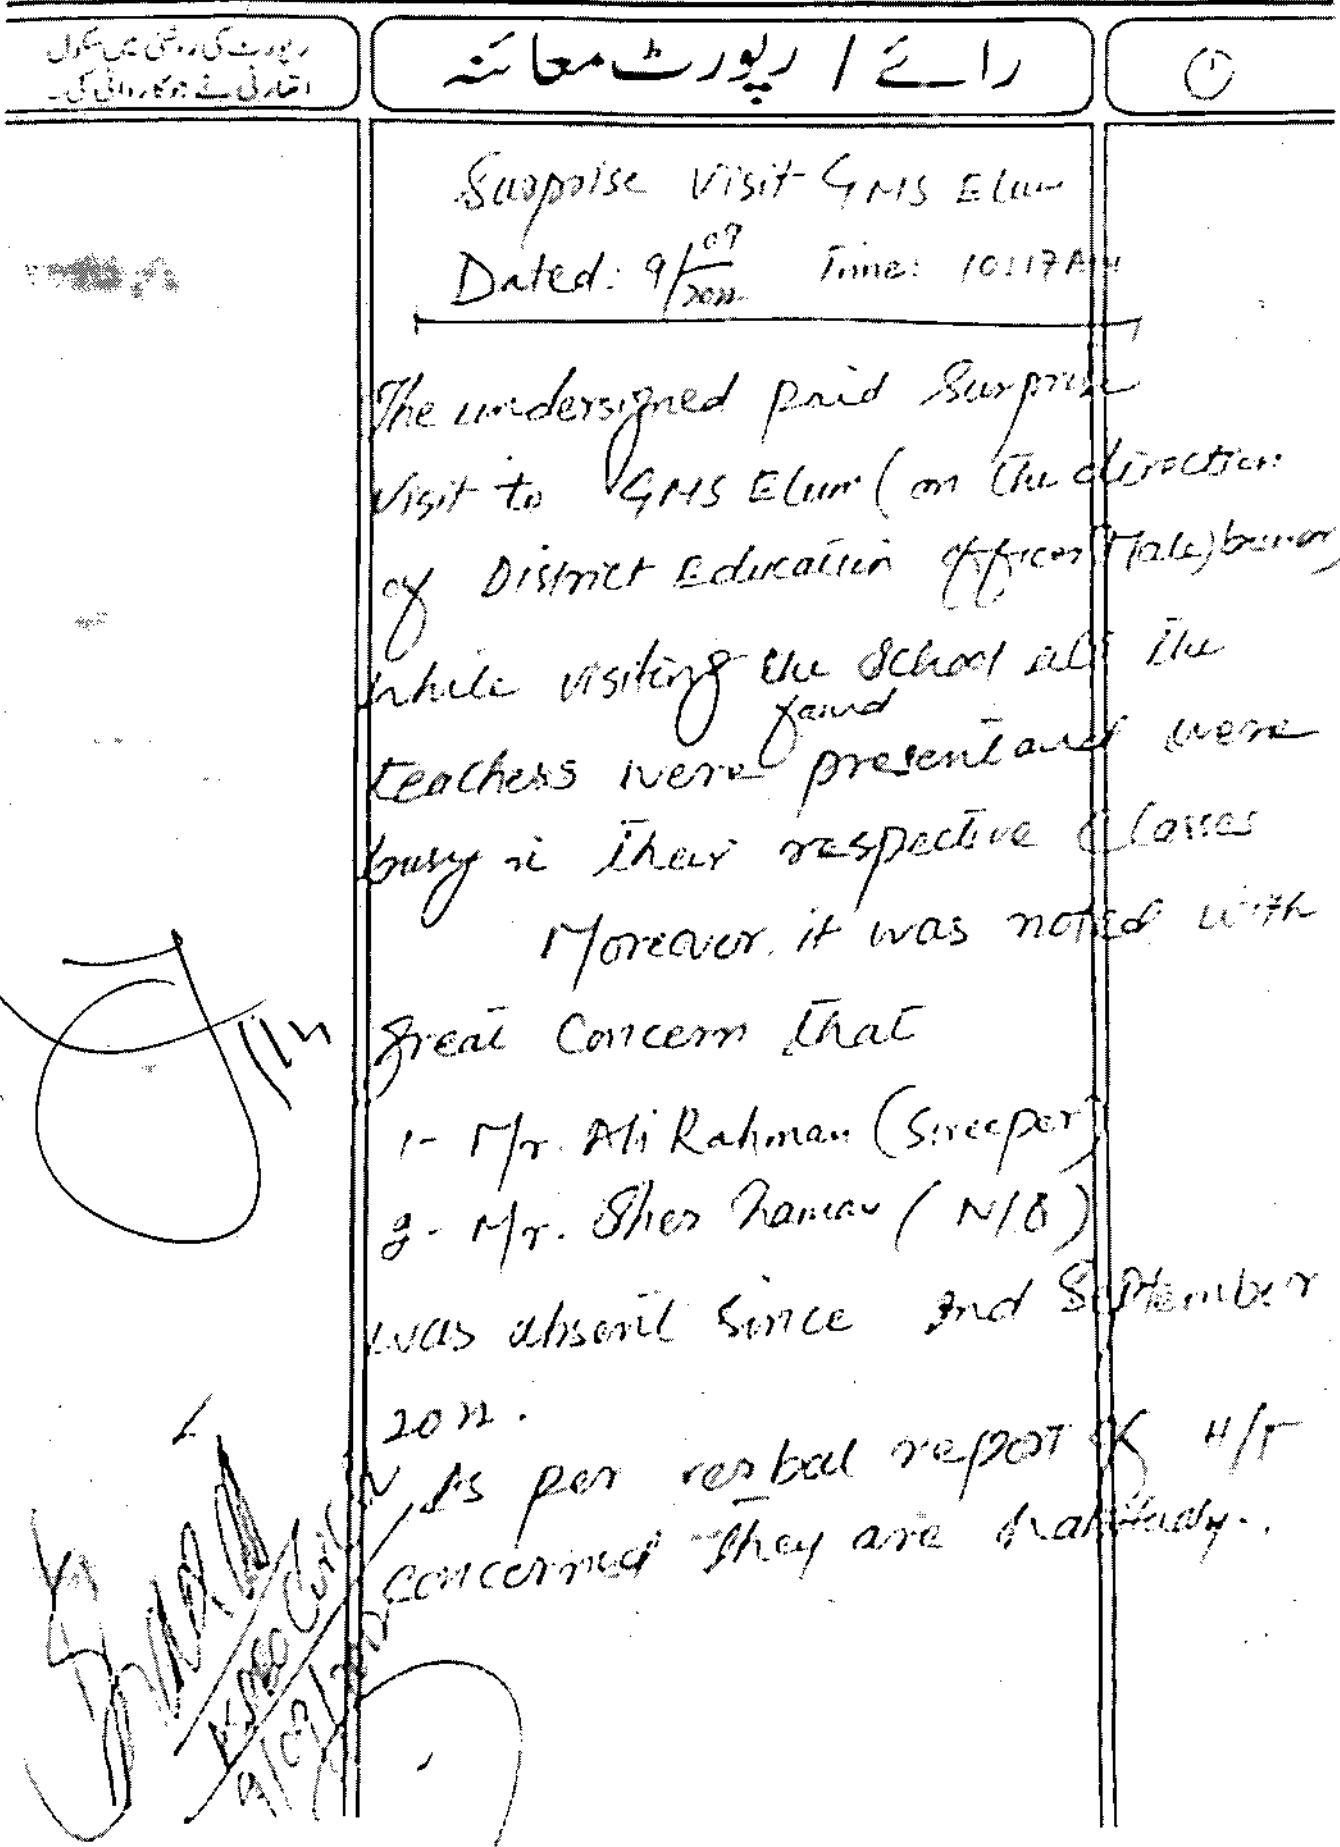 رپورٹ کی روشنی میں سکول
اتھارٹی نے جو کاروائی کی۔
رائے / رپورٹ معائنہ
Surprise Visit GMS Elum
Dated: 9/09/2022 Time: 10:17 AM
The undersigned paid Surprise
Visit to GMS Elum (on the direction
of District Education Officer (Male) buner)
while visiting the School all the
found
teachers were present and were
busy in their respective Classes
Moreover, it was noted with
great Concern that
1- Mr. Ali Rahman (Sweeper)
2- Mr. Sher Zaman (N/Q)
was absent Since 2nd September
2022.
As per verbal report of H/T
concerned They are habitually.
ASDEO Circle
9/09/2022